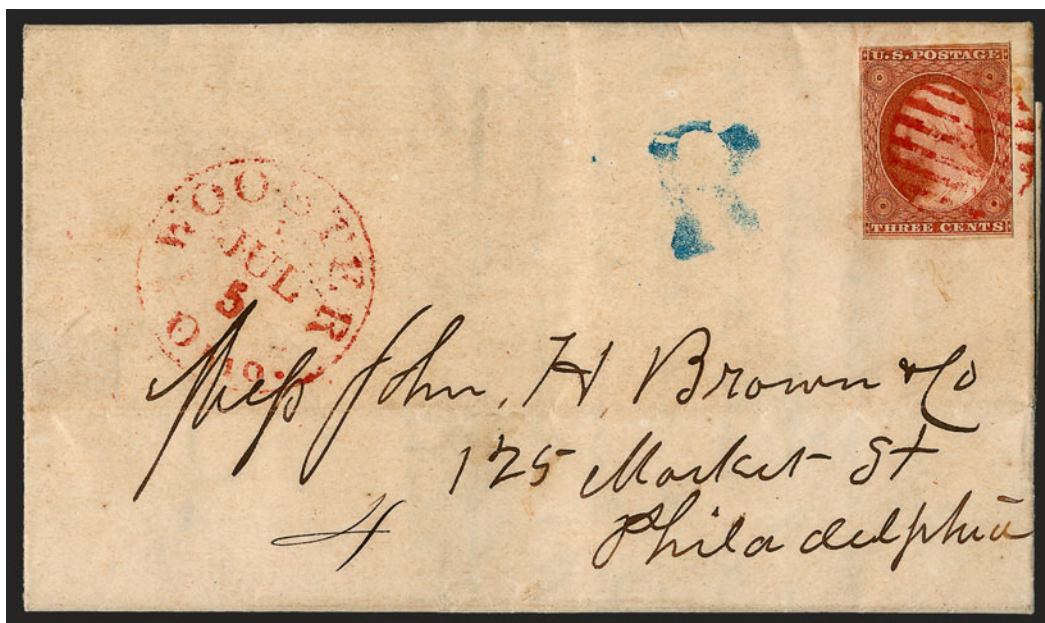 U.S. POSTAGE
THREE CENTS
R
WOOSTER
JUL
5
OHIO.
Mess John, H Brown & Co
125 Market St
Philadelphia
4